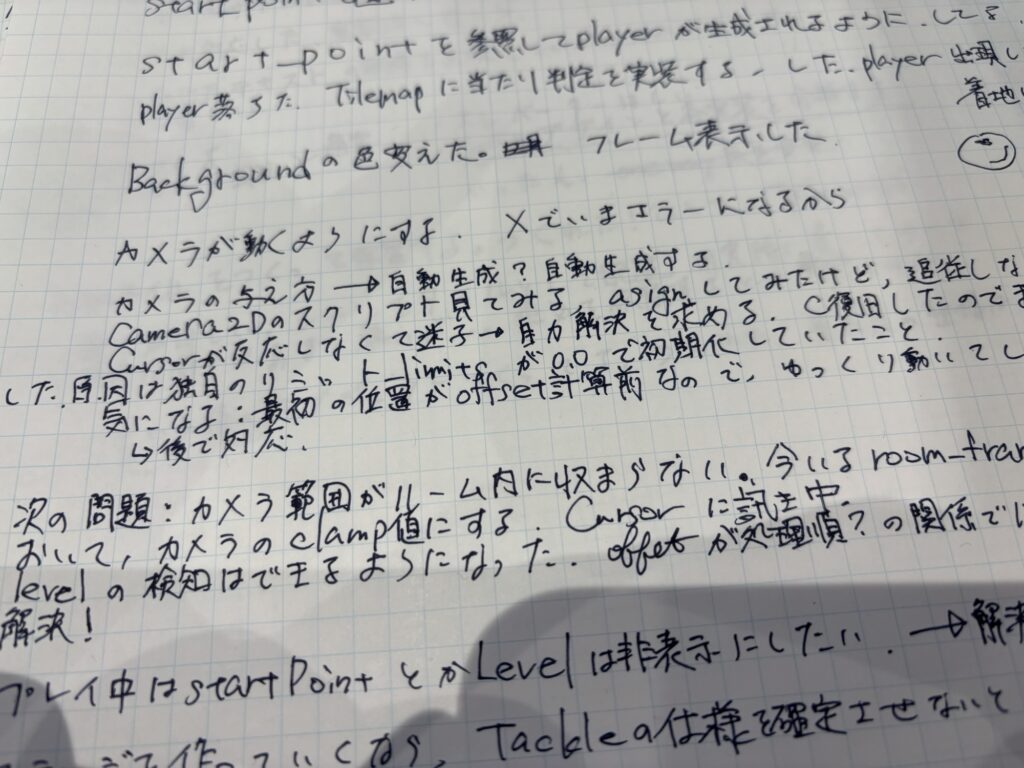 start_point
start_pointを参照してplayerが生成されるように.してる
player落ちた. Tilemapに当たり判定を実装する. した. player出現し
着地
Backgroundの色変えた。 フレーム表示した
カメラが動くようにする. Xでいまエラーになるから
カメラの与え方→自動生成?自動生成する.
Camera2Dのスクリプト見てみる. asignしてみたけど, 追従しな
Cursorが反応しなくて迷子→自力解決を求める. C復旧したので
した.原因は独自の limitsが0.0で初期化していたこと.
気になる:最初の位置がoffset計算前なので, ゆっくり動いてし
↳後で対応.
次の問題:カメラ範囲がルーム内に収まらない. 今いるroom_fra
おいて, カメラのclamp値にする. Cursorに訊き中.
levelの検知はできるようになった. offsetが処理順?の関係で
解決!
プレイ中はstartPointとかLevelは非表示にしたい. →解決
作っていくなら, Tackleの仕様を確定させないと